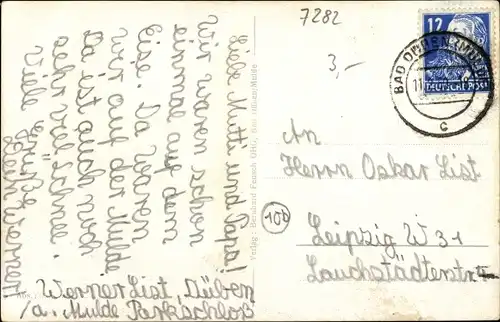 7282
3,-
12
DEUTSCHE POST
BAD DÜBEN (MULDE)
c
Liebe Mutti und Papa!
Wir waren schon
einmal auf dem
Eise. Da waren
wir auf der Mulde
Da ist auch noch
sehr viel Schnee.
Viele Grüße
Euer Werner!
Werner List, Düben
/a. Mulde Parkschloß
Verlag: Bernhard
An
Herrn Oskar List
10b
Leipzig W 31
Lauchstädterstr